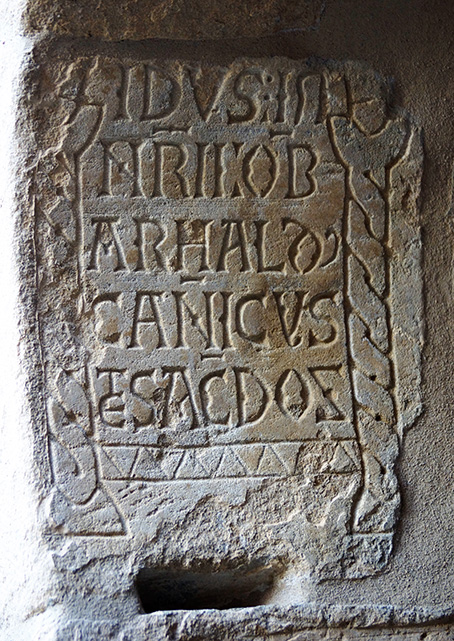 IDVS:IAN
ARII OB
ARNALD
CANICVS
ET SACDOS